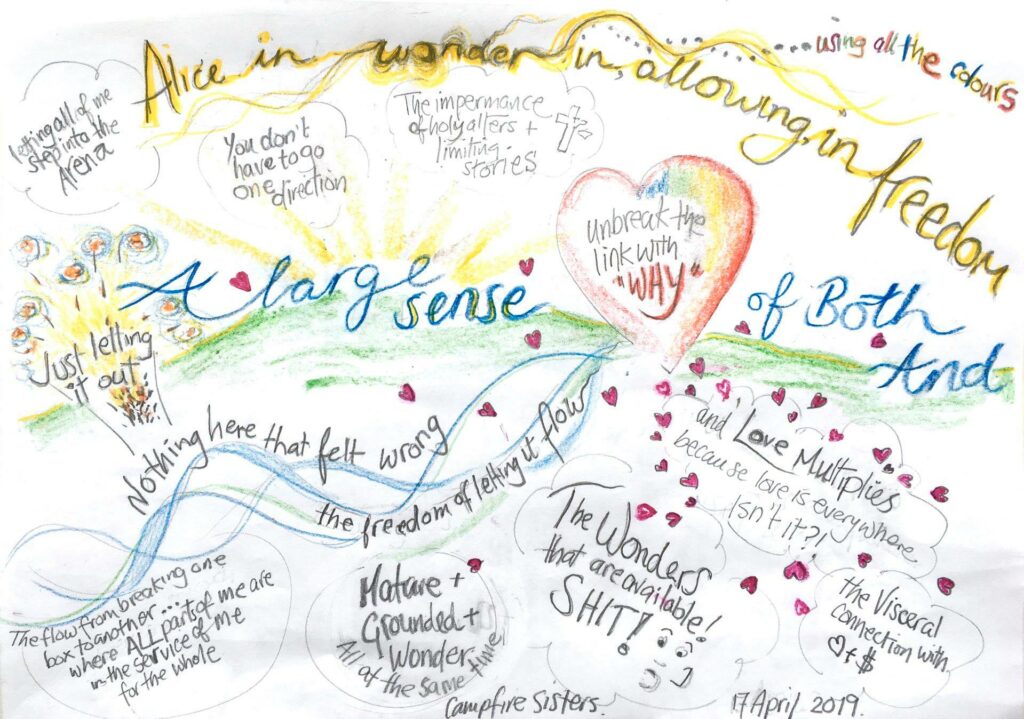 Alice in wonder in, allowing, in freedom
using all the colours
letting all of me
step into the
Arena
You don't
have to go
one direction
The impermance
of holy alters +
limiting
stories
unbreak the
link with
"WHY"
A large sense of Both And
Just letting
it out
Nothing here that felt wrong
the freedom of letting it flow
and Love Multiplies
because love is everywhere
Isn't it?!
The Wonders
that are available!
SHIT!
The flow from breaking one
box to another ...
where ALL parts of me are
in the service of me
for the whole
Mature +
Grounded +
Wonder
All at the same time
the Visceral
connection with
♡ + $
Campfire Sisters.
17 April 2019.